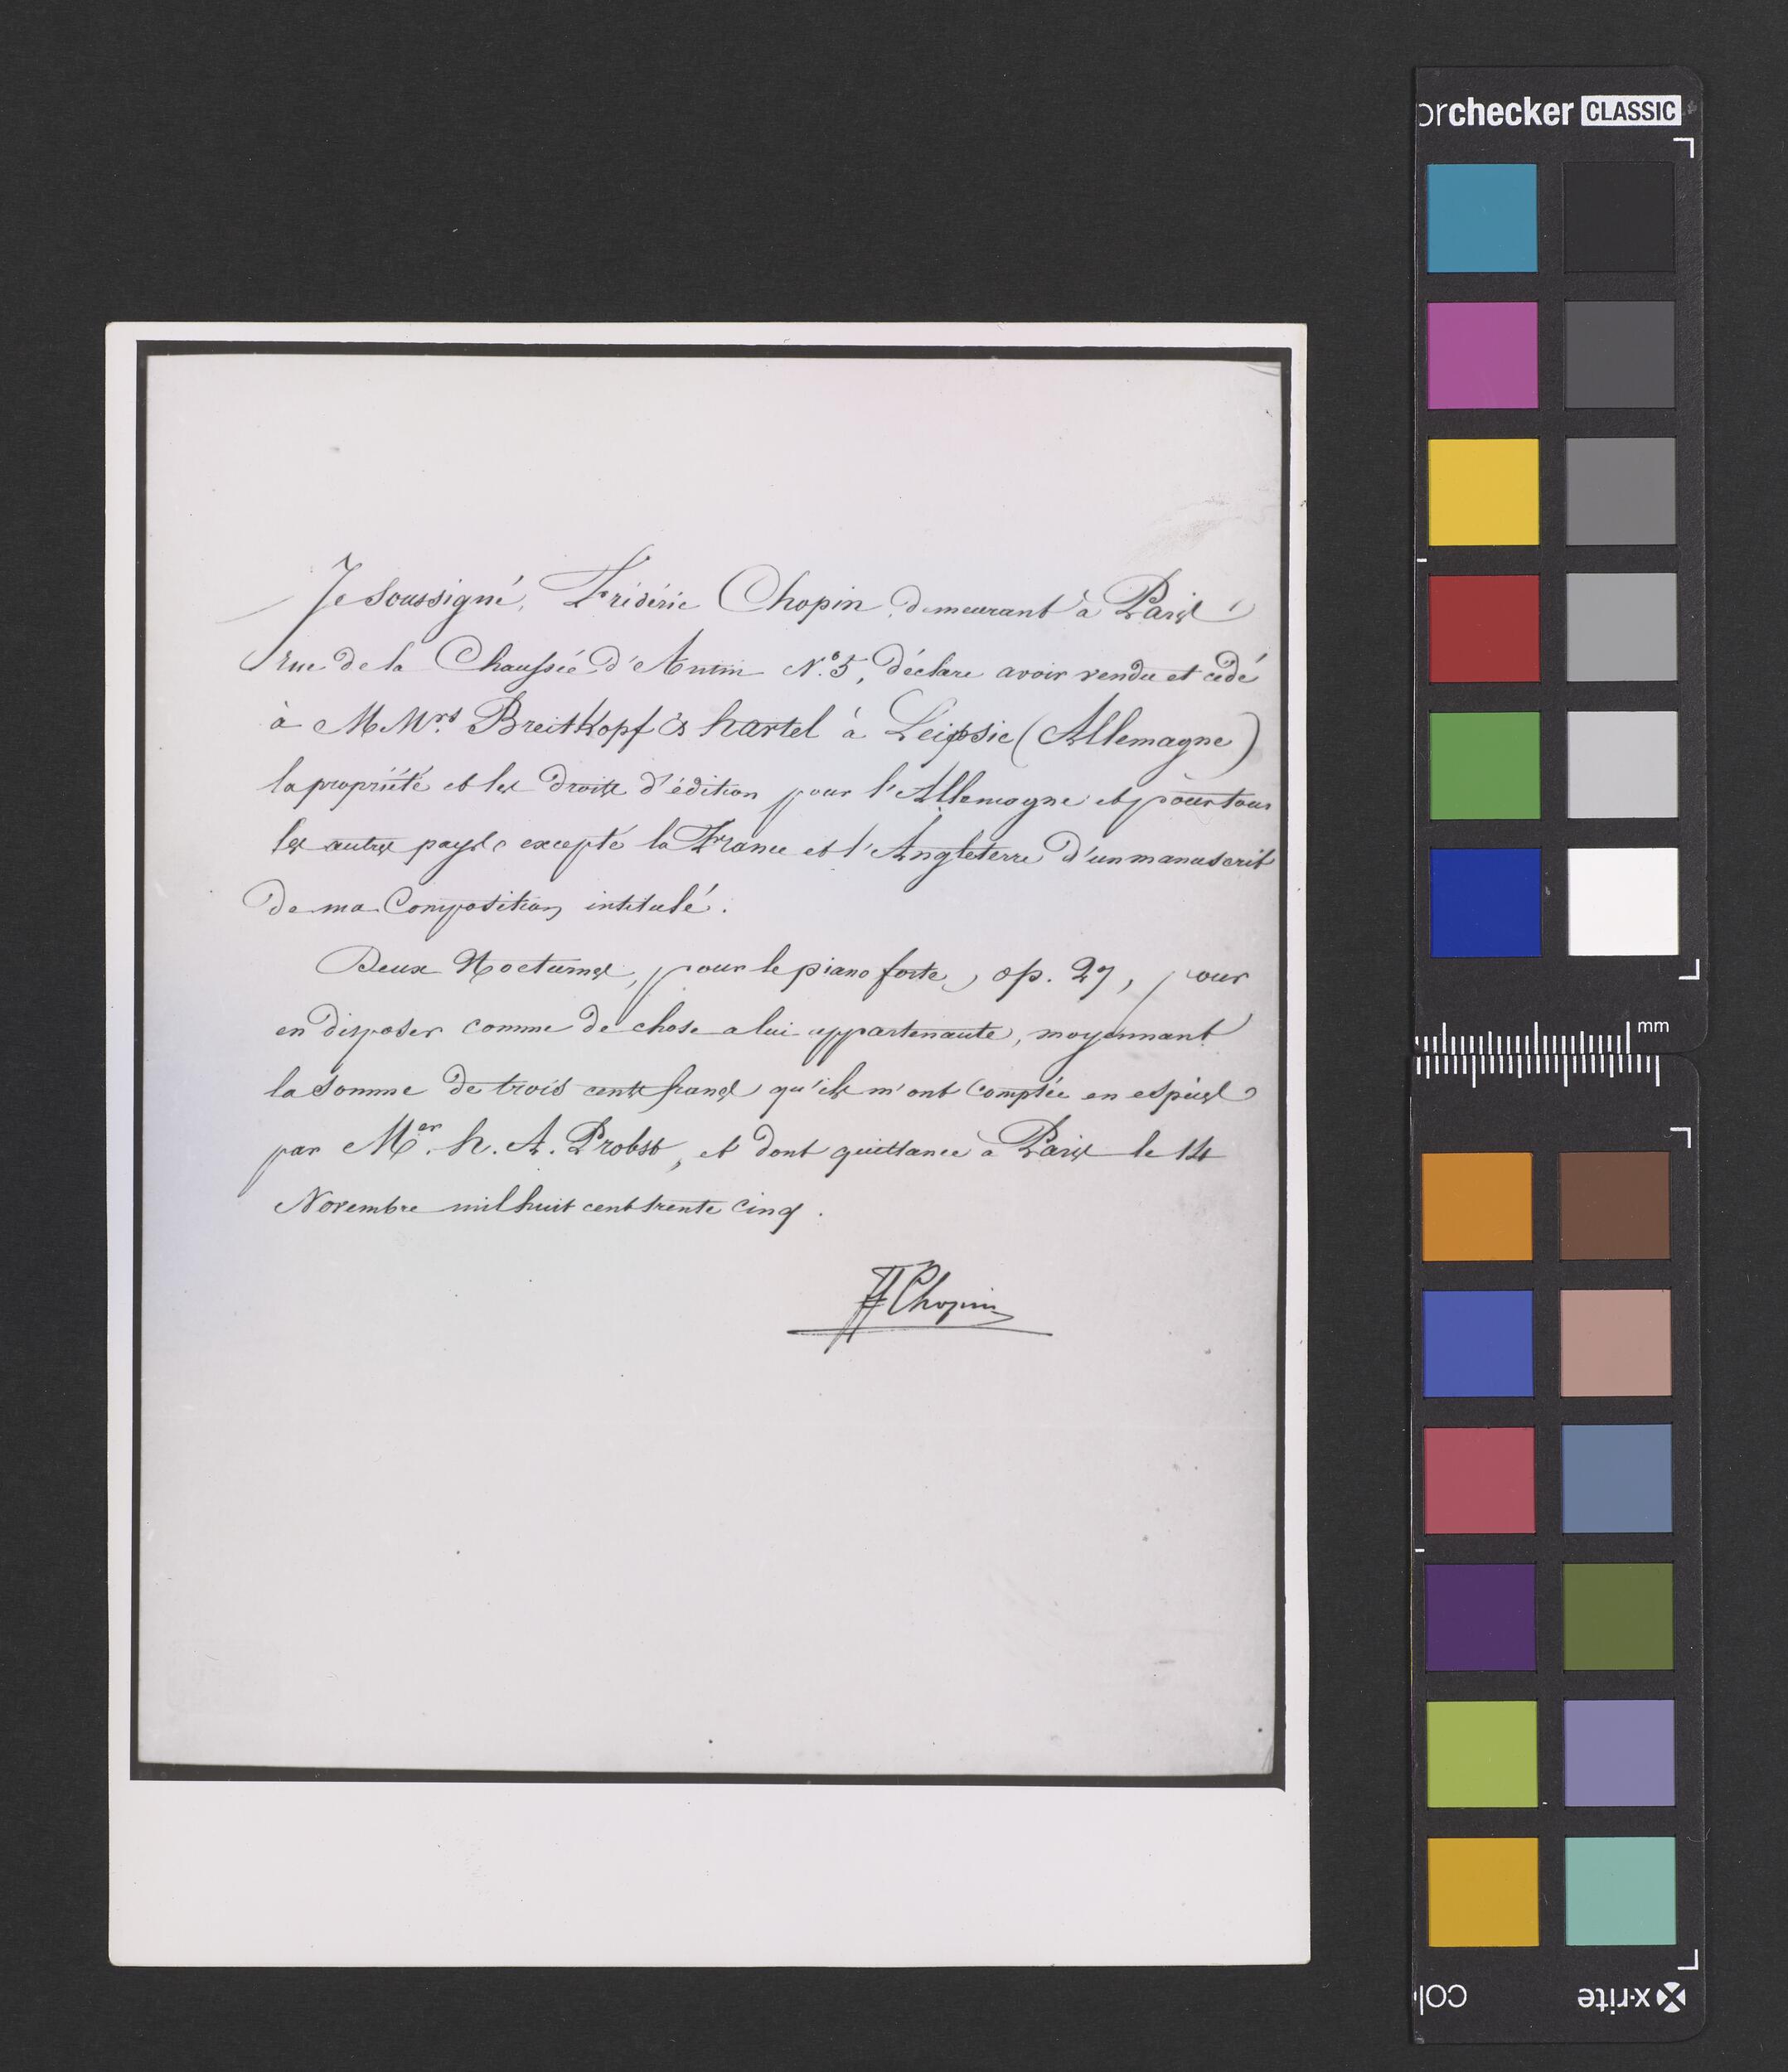 Je soussigné, Fréderic Chopin, demeurant à Paris
rue de la Chaussée d'Antin N.º 5, déclare avoir vendu et cédé
à M Mrs. Breitkopf & hartel à Leipsic (Allemagne)
la propriété et les droits d'édition pour l'Allemagne et pour tous
les autres pays, excepté la France et l'Angleterre d'un manuscrit
de ma Composition intitulé.
Deux Nocturnes, pour le piano forte, op. 27, pour
en disposer comme de chose a lui appartenante, moyennant
la somme de trois cents francs, qu'ils m'ont Comptée en espèces
par Mer. h. A. Probst, et dont quittance à Paris le 14
Novembre mil huit cent trente Cinq.
FF Chopin
orchecker CLASSIC
mm
x-rite
col